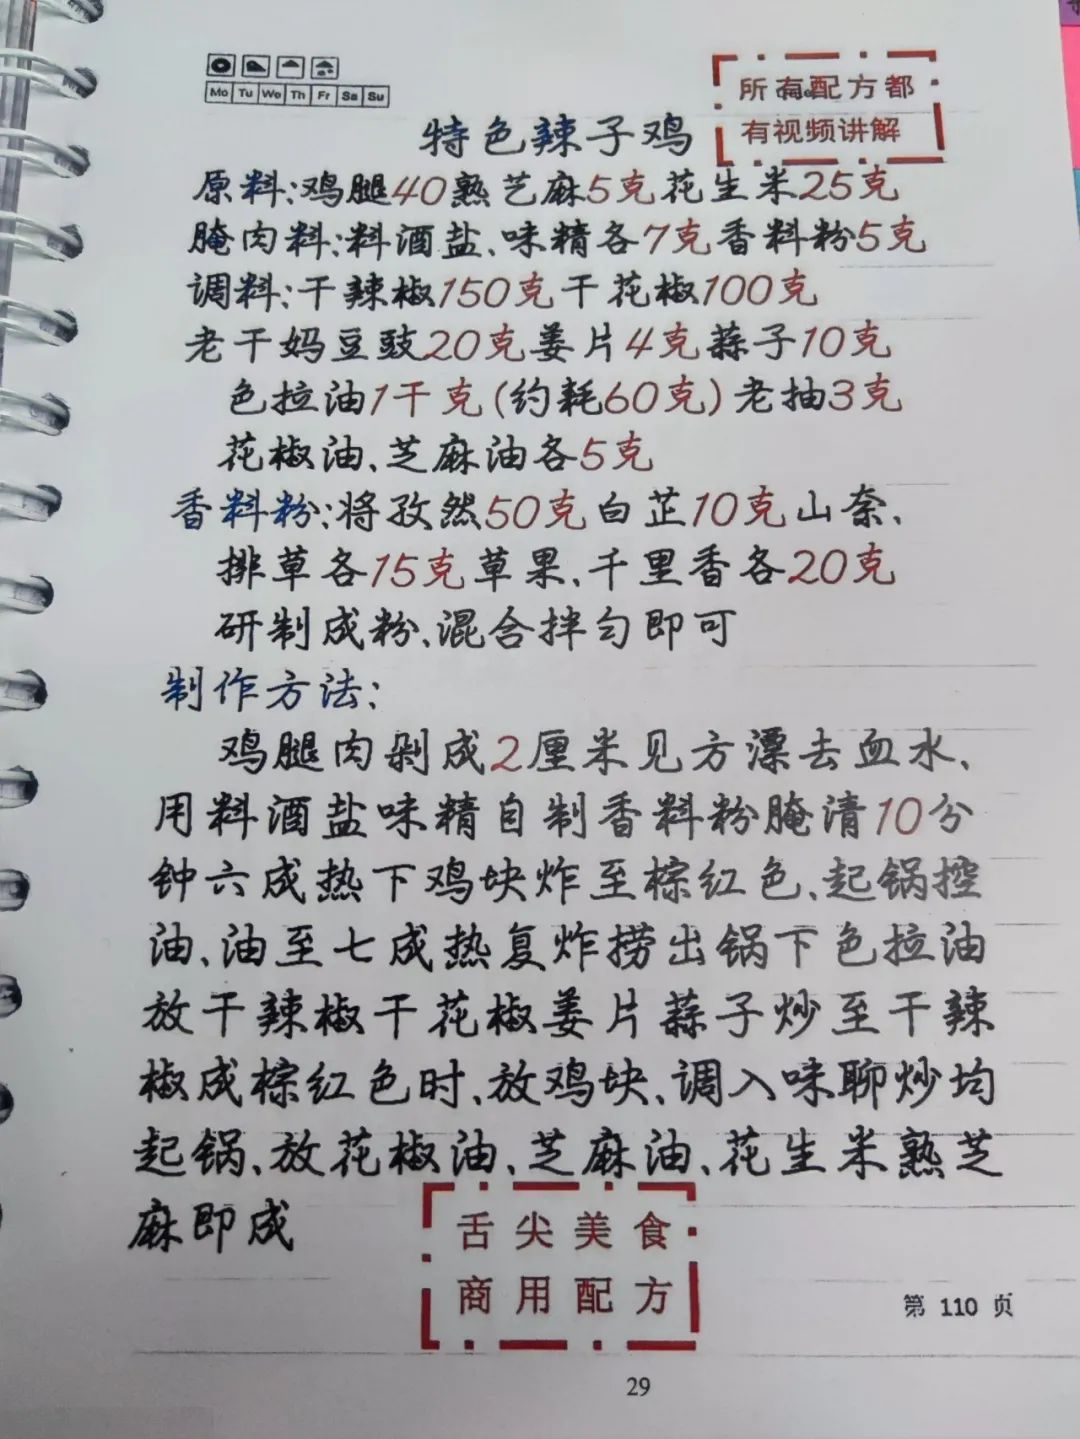 Mo Tu We Th Fr Sa Su
所有配方都
有视频讲解
特色辣子鸡
原料:鸡腿40熟芝麻5克花生米25克
腌肉料:料酒盐、味精各7克香料粉5克
调料:干辣椒150克干花椒100克
老干妈豆豉20克姜片4克蒜子10克
色拉油1千克(约耗60克)老抽3克
花椒油、芝麻油各5克
香料粉:将孜然50克白芷10克山奈、
排草各15克草果、千里香各20克
研制成粉、混合拌匀即可
制作方法:
鸡腿肉剁成2厘米见方漂去血水、
用料酒盐味精自制香料粉腌渍10分
钟六成热下鸡块炸至棕红色、起锅控
油、油至七成热复炸捞出锅下色拉油
放干辣椒干花椒姜片蒜子炒至干辣
椒成棕红色时、放鸡块、调入味聊炒均
起锅、放花椒油、芝麻油、花生米熟芝
麻即成
舌尖美食
商用配方
第 110 页
29